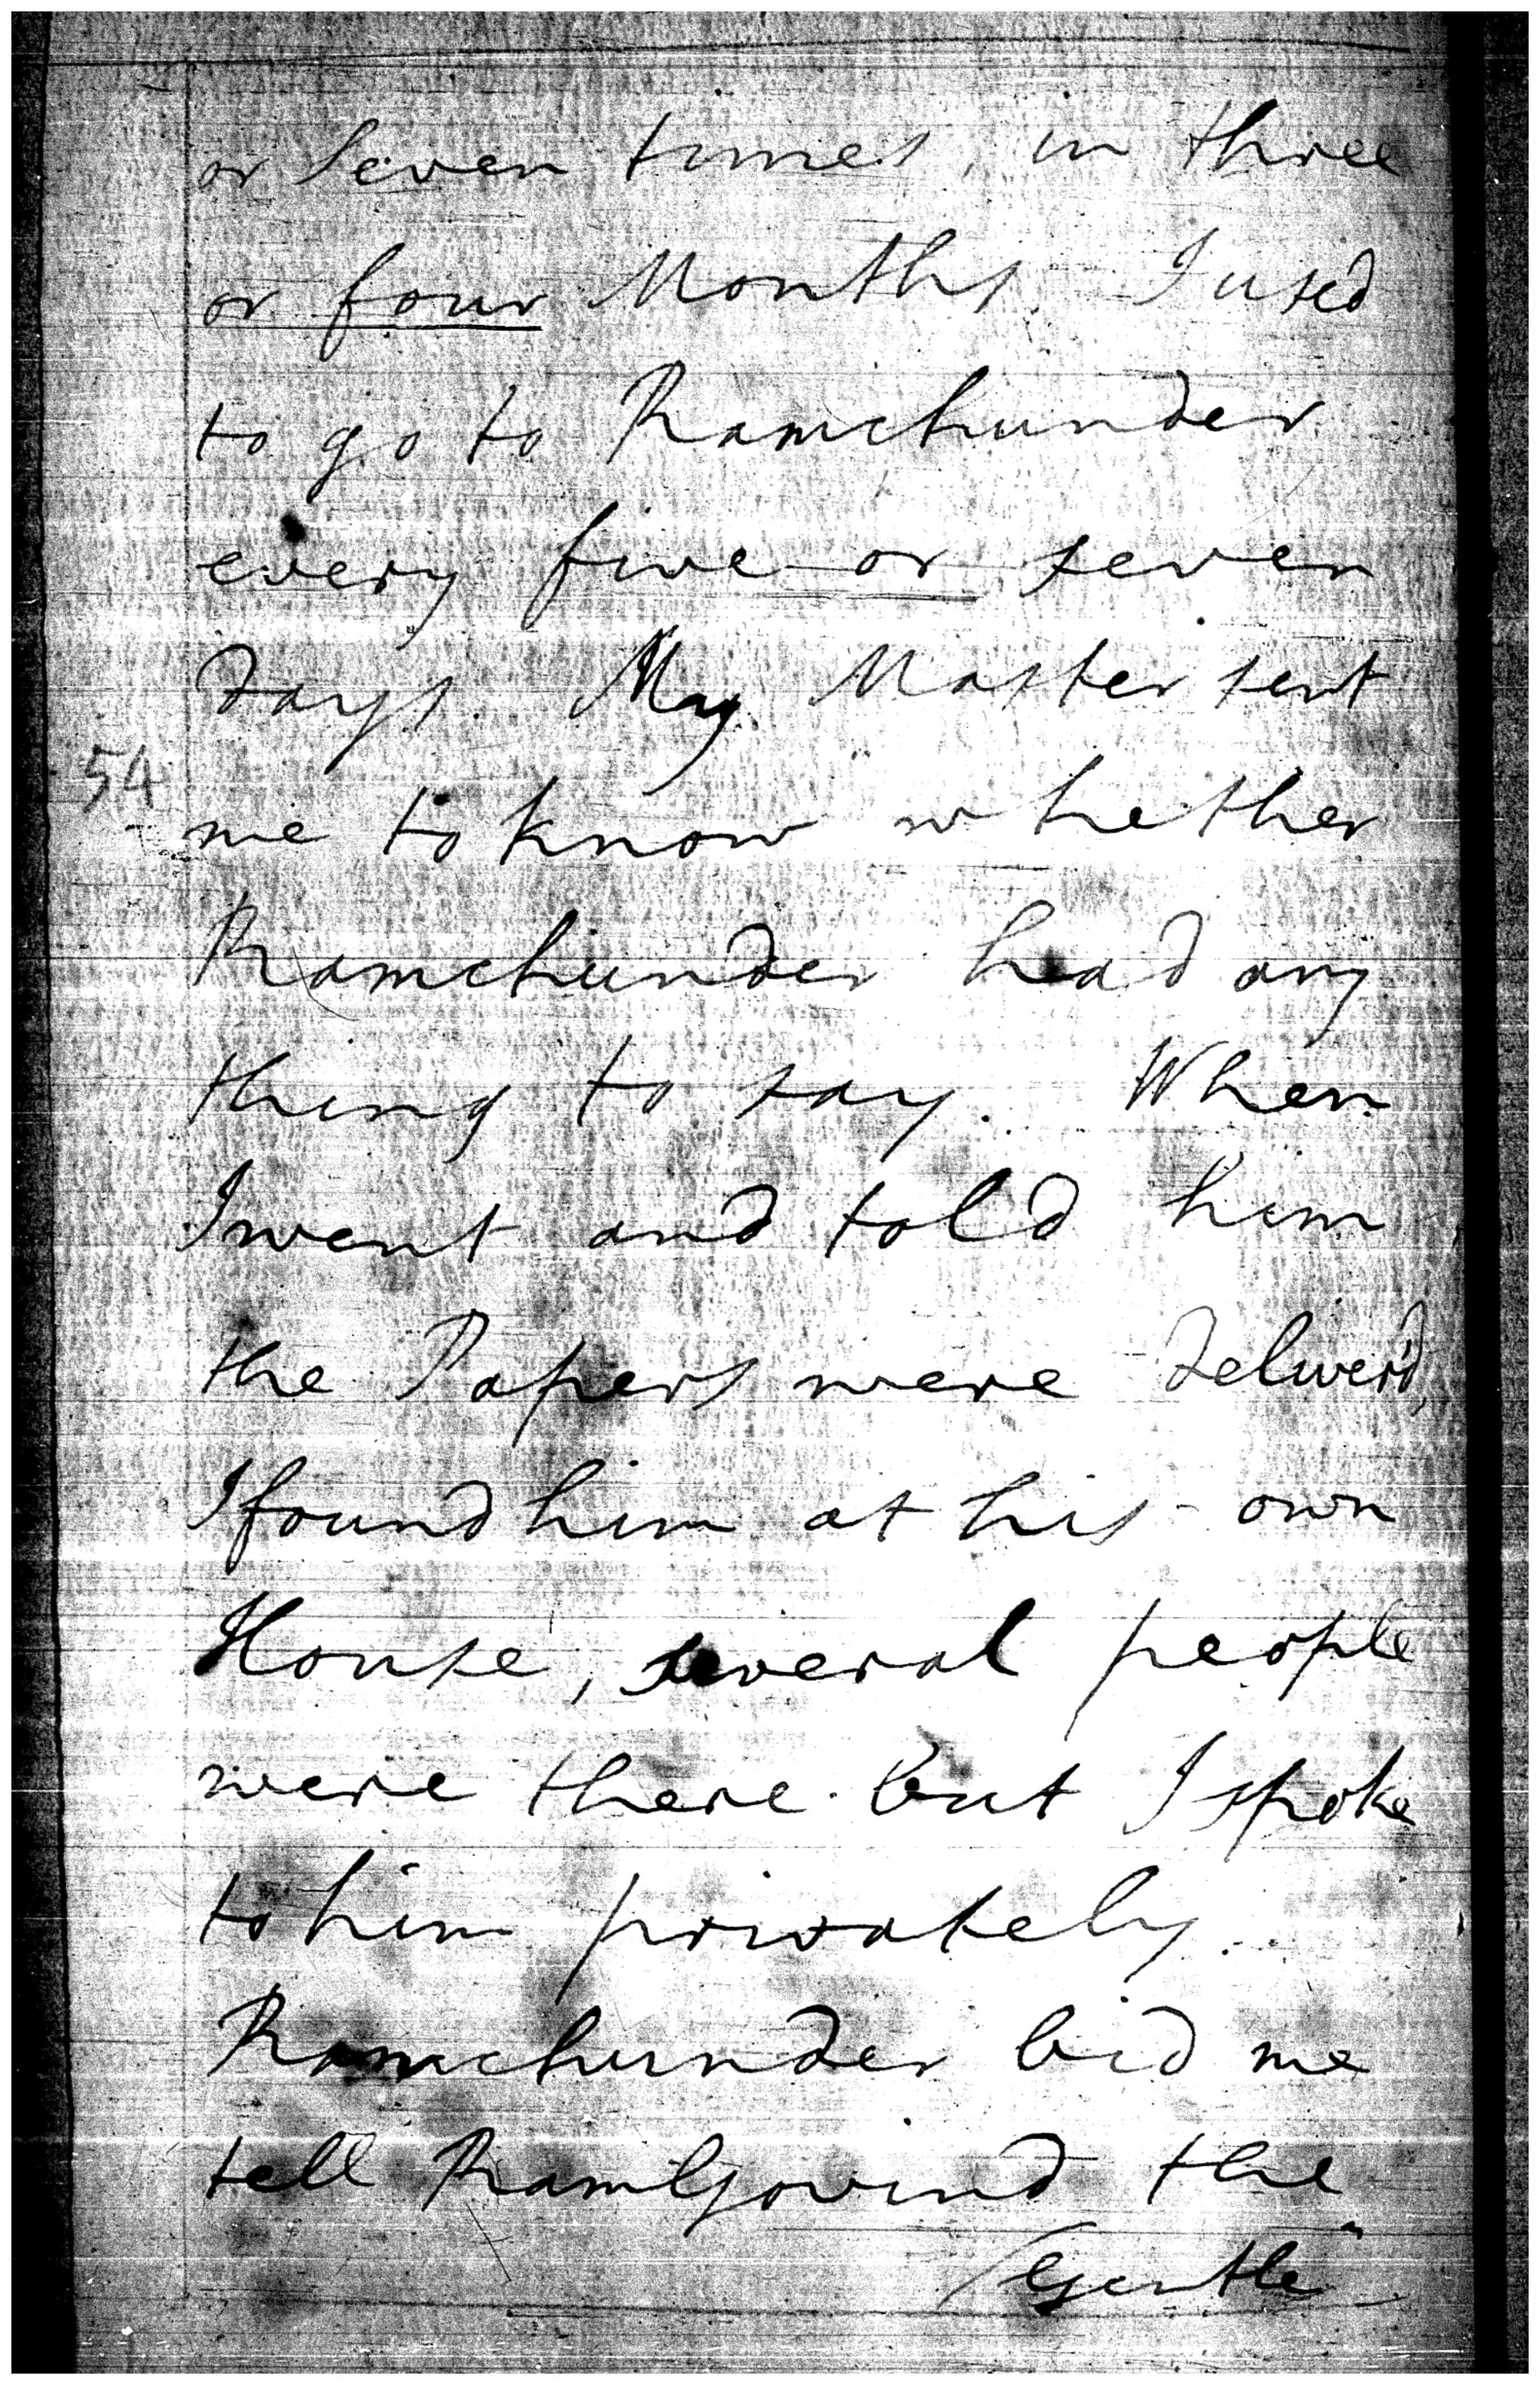 or Seven times, in three
or four Months. I used
to go to Ramchunder
every five or seven
Days. My Master sent
54
me to know whether
Ramchunder had any
thing to say. When
I went and told him
the Papers were Deliver'd,
I found him at his own
House, several people
were there. but I spoke
to him privately.
Ramchunder bid me
tell RamGovind the
Gentle"